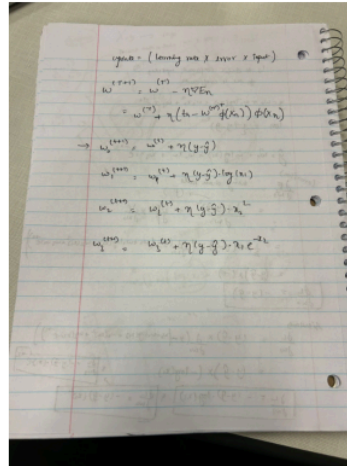 update = (learning rate x error x input)
w^(τ+1) = w^(τ) - η∇En
= w^(τ) + η(tn - w^(τ)T φ(xn)) φ(xn)
→ w0^(t+1) = w0^(t) + η(y-ŷ)
w1^(t+1) = w1^(t) + η(y-ŷ)·log(x1)
w2^(t+1) = w2^(t) + η(y-ŷ)·x2^2
w3^(t+1) = w3^(t) + η(y-ŷ)·x3 e^-x2